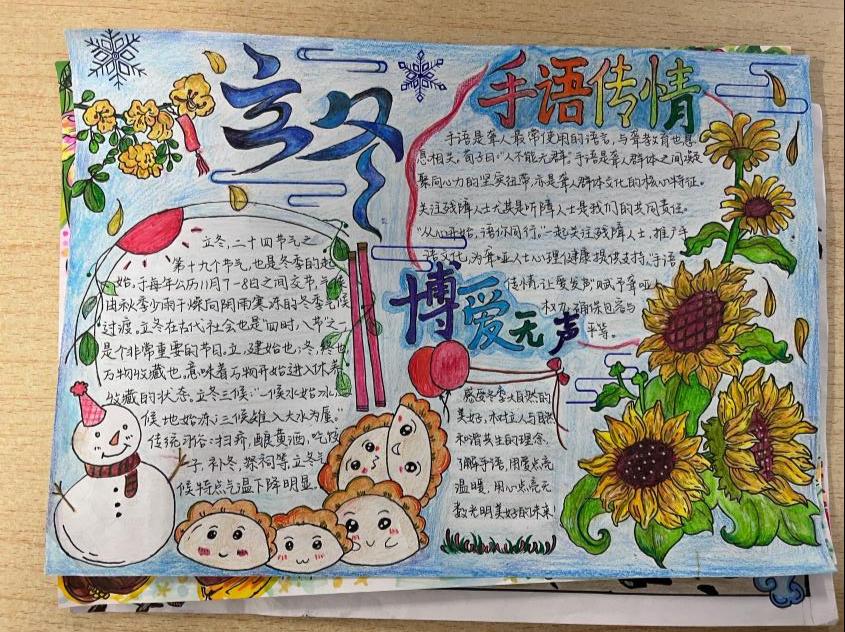 立冬
立冬,二十四节气之
第十九个节气,也是冬季的起
始,于每年公历11月7-8日之间交节,气候
由秋季少雨干燥向阴雨寒冻的冬季气候
过渡,立冬在古代社会也是"四时八节"之一
是个非常重要的节日,立,建始也;冬,终也,
万物收藏也,意味着万物开始进入休养、
收藏的状态,立冬三候:"一候水始冰;二
候地始冻;三候雉入大水为蜃。"
传统习俗:扫疥,酿黄酒,吃饺
子,补冬,祭祠等,立冬气
候特点气温下降明显。
手语传情
手语是聋人最常使用的语言,与聋教育也息
息相关,荀子曰"人不能无群",手语是聋人群体之间凝
聚同心力的坚实纽带,亦是聋人群体文化的核心特征。
关注残障人士尤其是听障人士是我们的共同责任。
"从心开始,语你同行,"一起关注残障人士,推广手
语文化,为聋哑人士心理健康提供支持,手语
传情,让爱发声,赋予聋哑人
权力,确保包容与
平等。
博爱无声
感受冬季大自然的
美好,树立人与自然
和谐共生的理念,
了解手语,用爱点亮
温暖,用心点亮无
数光明美好的未来!